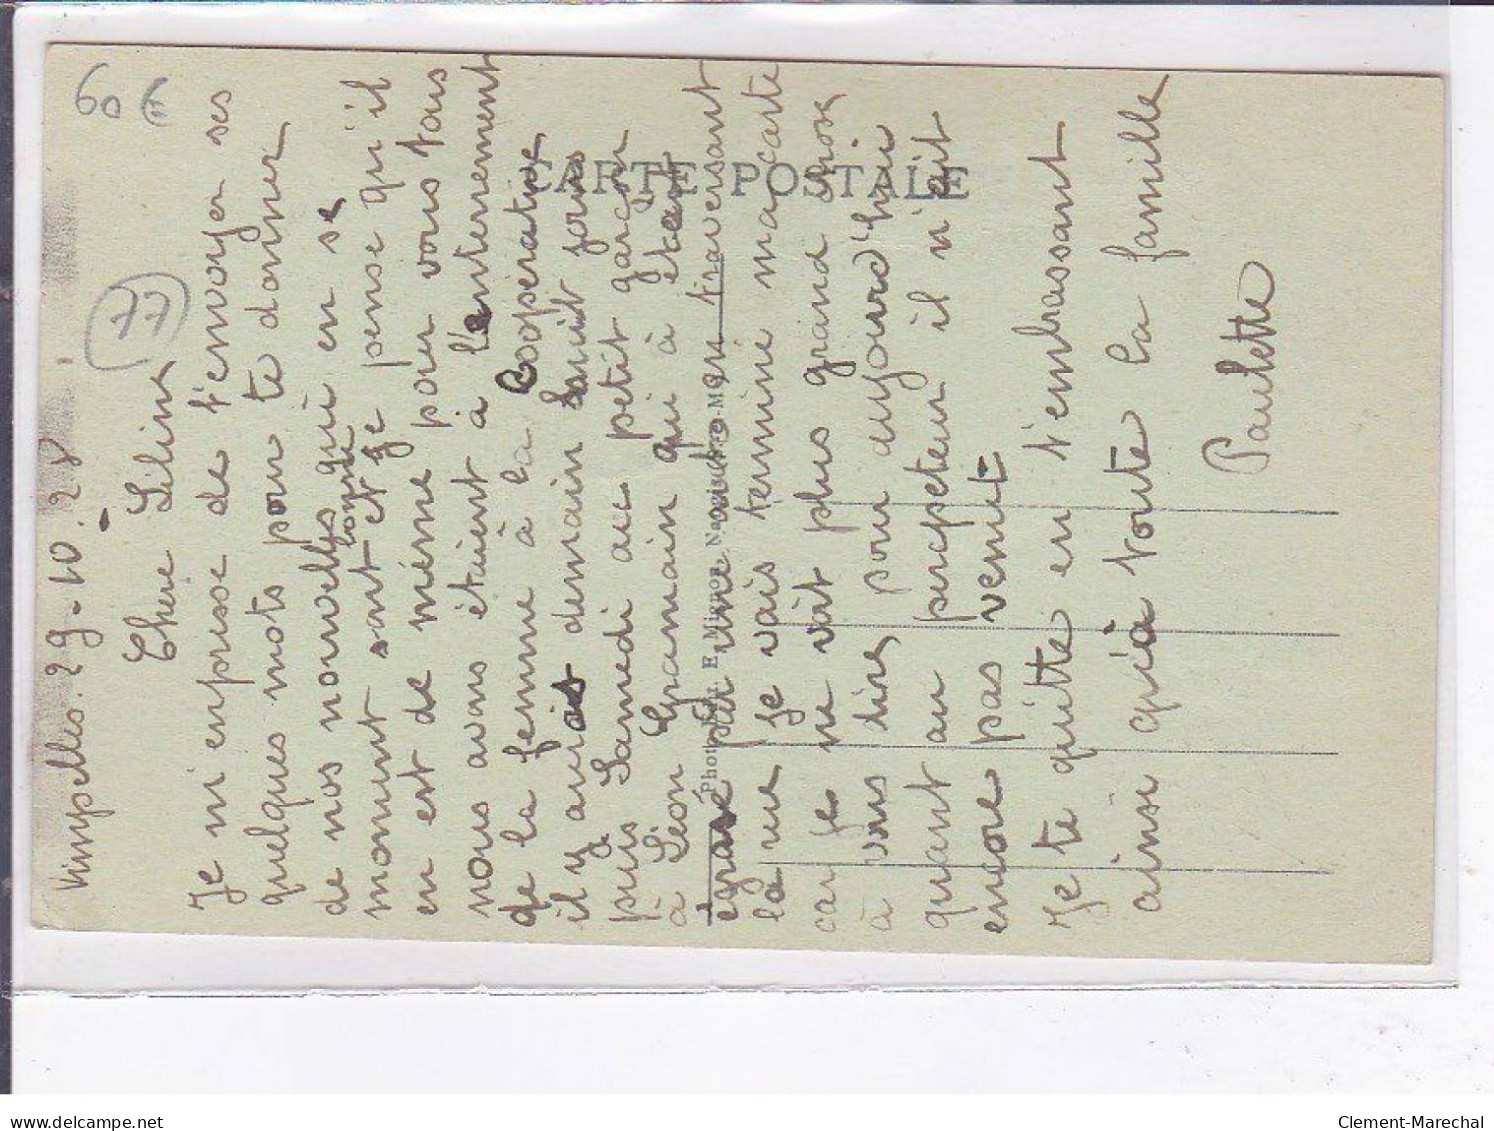 60 €
77
Vimpelles. 29-10.28.
Chere Lélina
Je m'enpresse de t'envoyer ses
quelques mots pour te donner
de nos nouvelles qui en se
moment sont bonne et je pense qu'il
en est de même pour vous tous
nous avons étaient à l'enterrement
de la femme à la Coopérative
il y aurais demain huit jours
puis Samedi au petit garçon
à Léon Gramain qui à étant
égrasé par une auto en traversant
la rue je vais terminé ma carte
car je ne voit plus grand chos
à vous dires pour aujourd'hui
quant au percpeteur il n'ait
encore pas venit
Je te quitte en t'embrassant
ainsi qu'à toute la famille
Paulette
CARTE POSTALE
Phototypie E. Mignon Nangis
Delcampe.net
Clement-Marechal